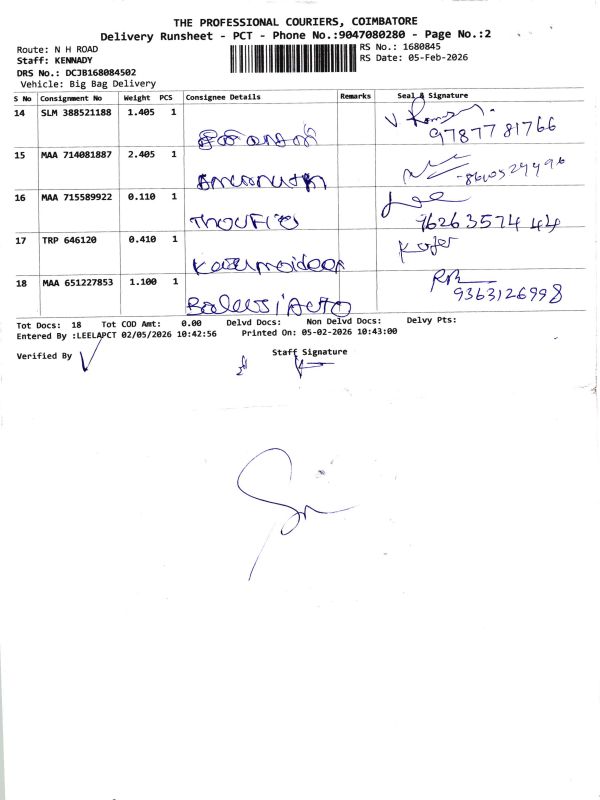 THE PROFESSIONAL COURIERS, COIMBATORE
Delivery Runsheet - PCT - Phone No.:9047080280 - Page No.:2
Route: N H ROAD
RS No.: 1680845
Staff: KENNADY
RS Date: 05-Feb-2026
DRS No.: DCJB168084502
Vehicle: Big Bag Delivery
S No Consignment No Weight PCS Consignee Details Remarks Seal & Signature
14 SLM 388521188 1.405 1
9787781766
15 MAA 714081887 2.405 1
16 MAA 715589922 0.110 1
7626357444
17 TRP 646120 0.410 1
18 MAA 651227853 1.100 1
9363126998
Tot Docs: 18 Tot COD Amt: 0.00 Delvd Docs: Non Delvd Docs: Delvy Pts:
Entered By :LEELAPCT 02/05/2026 10:42:56 Printed On: 05-02-2026 10:43:00
Verified By
Staff Signature